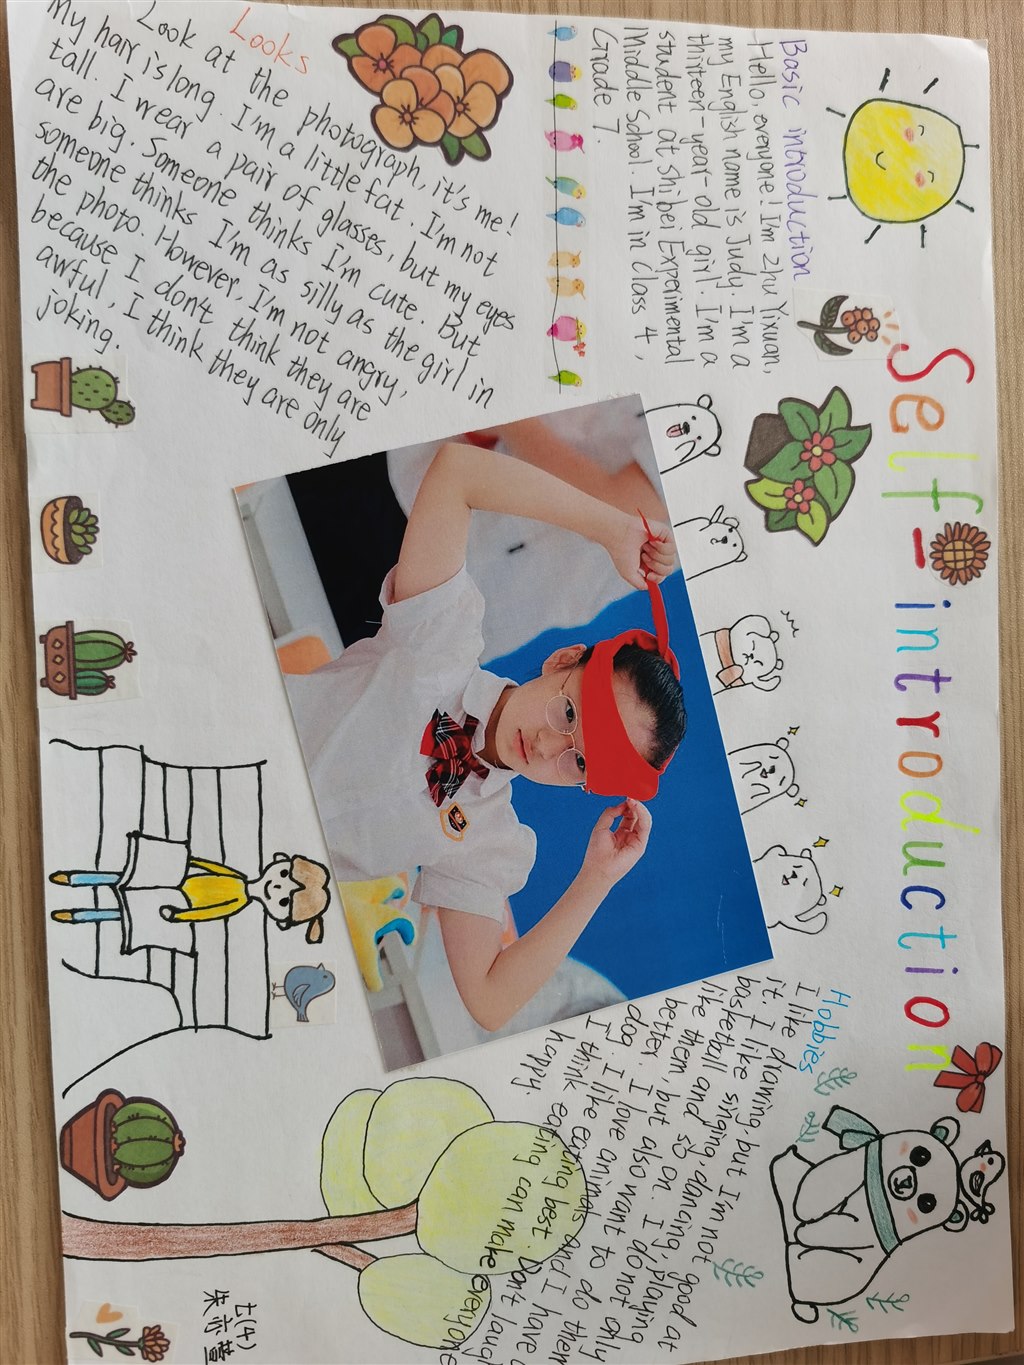 Self-introduction
Basic introduction
Hello, everyone! I'm Zhu Yixuan,
my English name is Judy. I'm a
thirteen-year-old girl. I'm a
student at shi bei Experimental
Middle School. I'm in Class 4,
Grade 7.
Looks
Look at the photograph, it's me!
My hair is long. I'm a little fat. I'm not
tall. I wear a pair of glasses, but my eyes
are big. Someone thinks I'm cute. But
someone thinks I'm as silly as the girl in
the photo. However, I'm not angry,
because I don't think they are
awful, I think they are only
joking.
Hobbies
I like drawing, but I'm not good at
it. I like singing, dancing, playing
basketball and so on. I do not only
like them, but also want to do them
better. I love animals and I have a
dog. I like eating best. Don't laugh
I think eating can make everyone
happy.
七(4)
朱亦